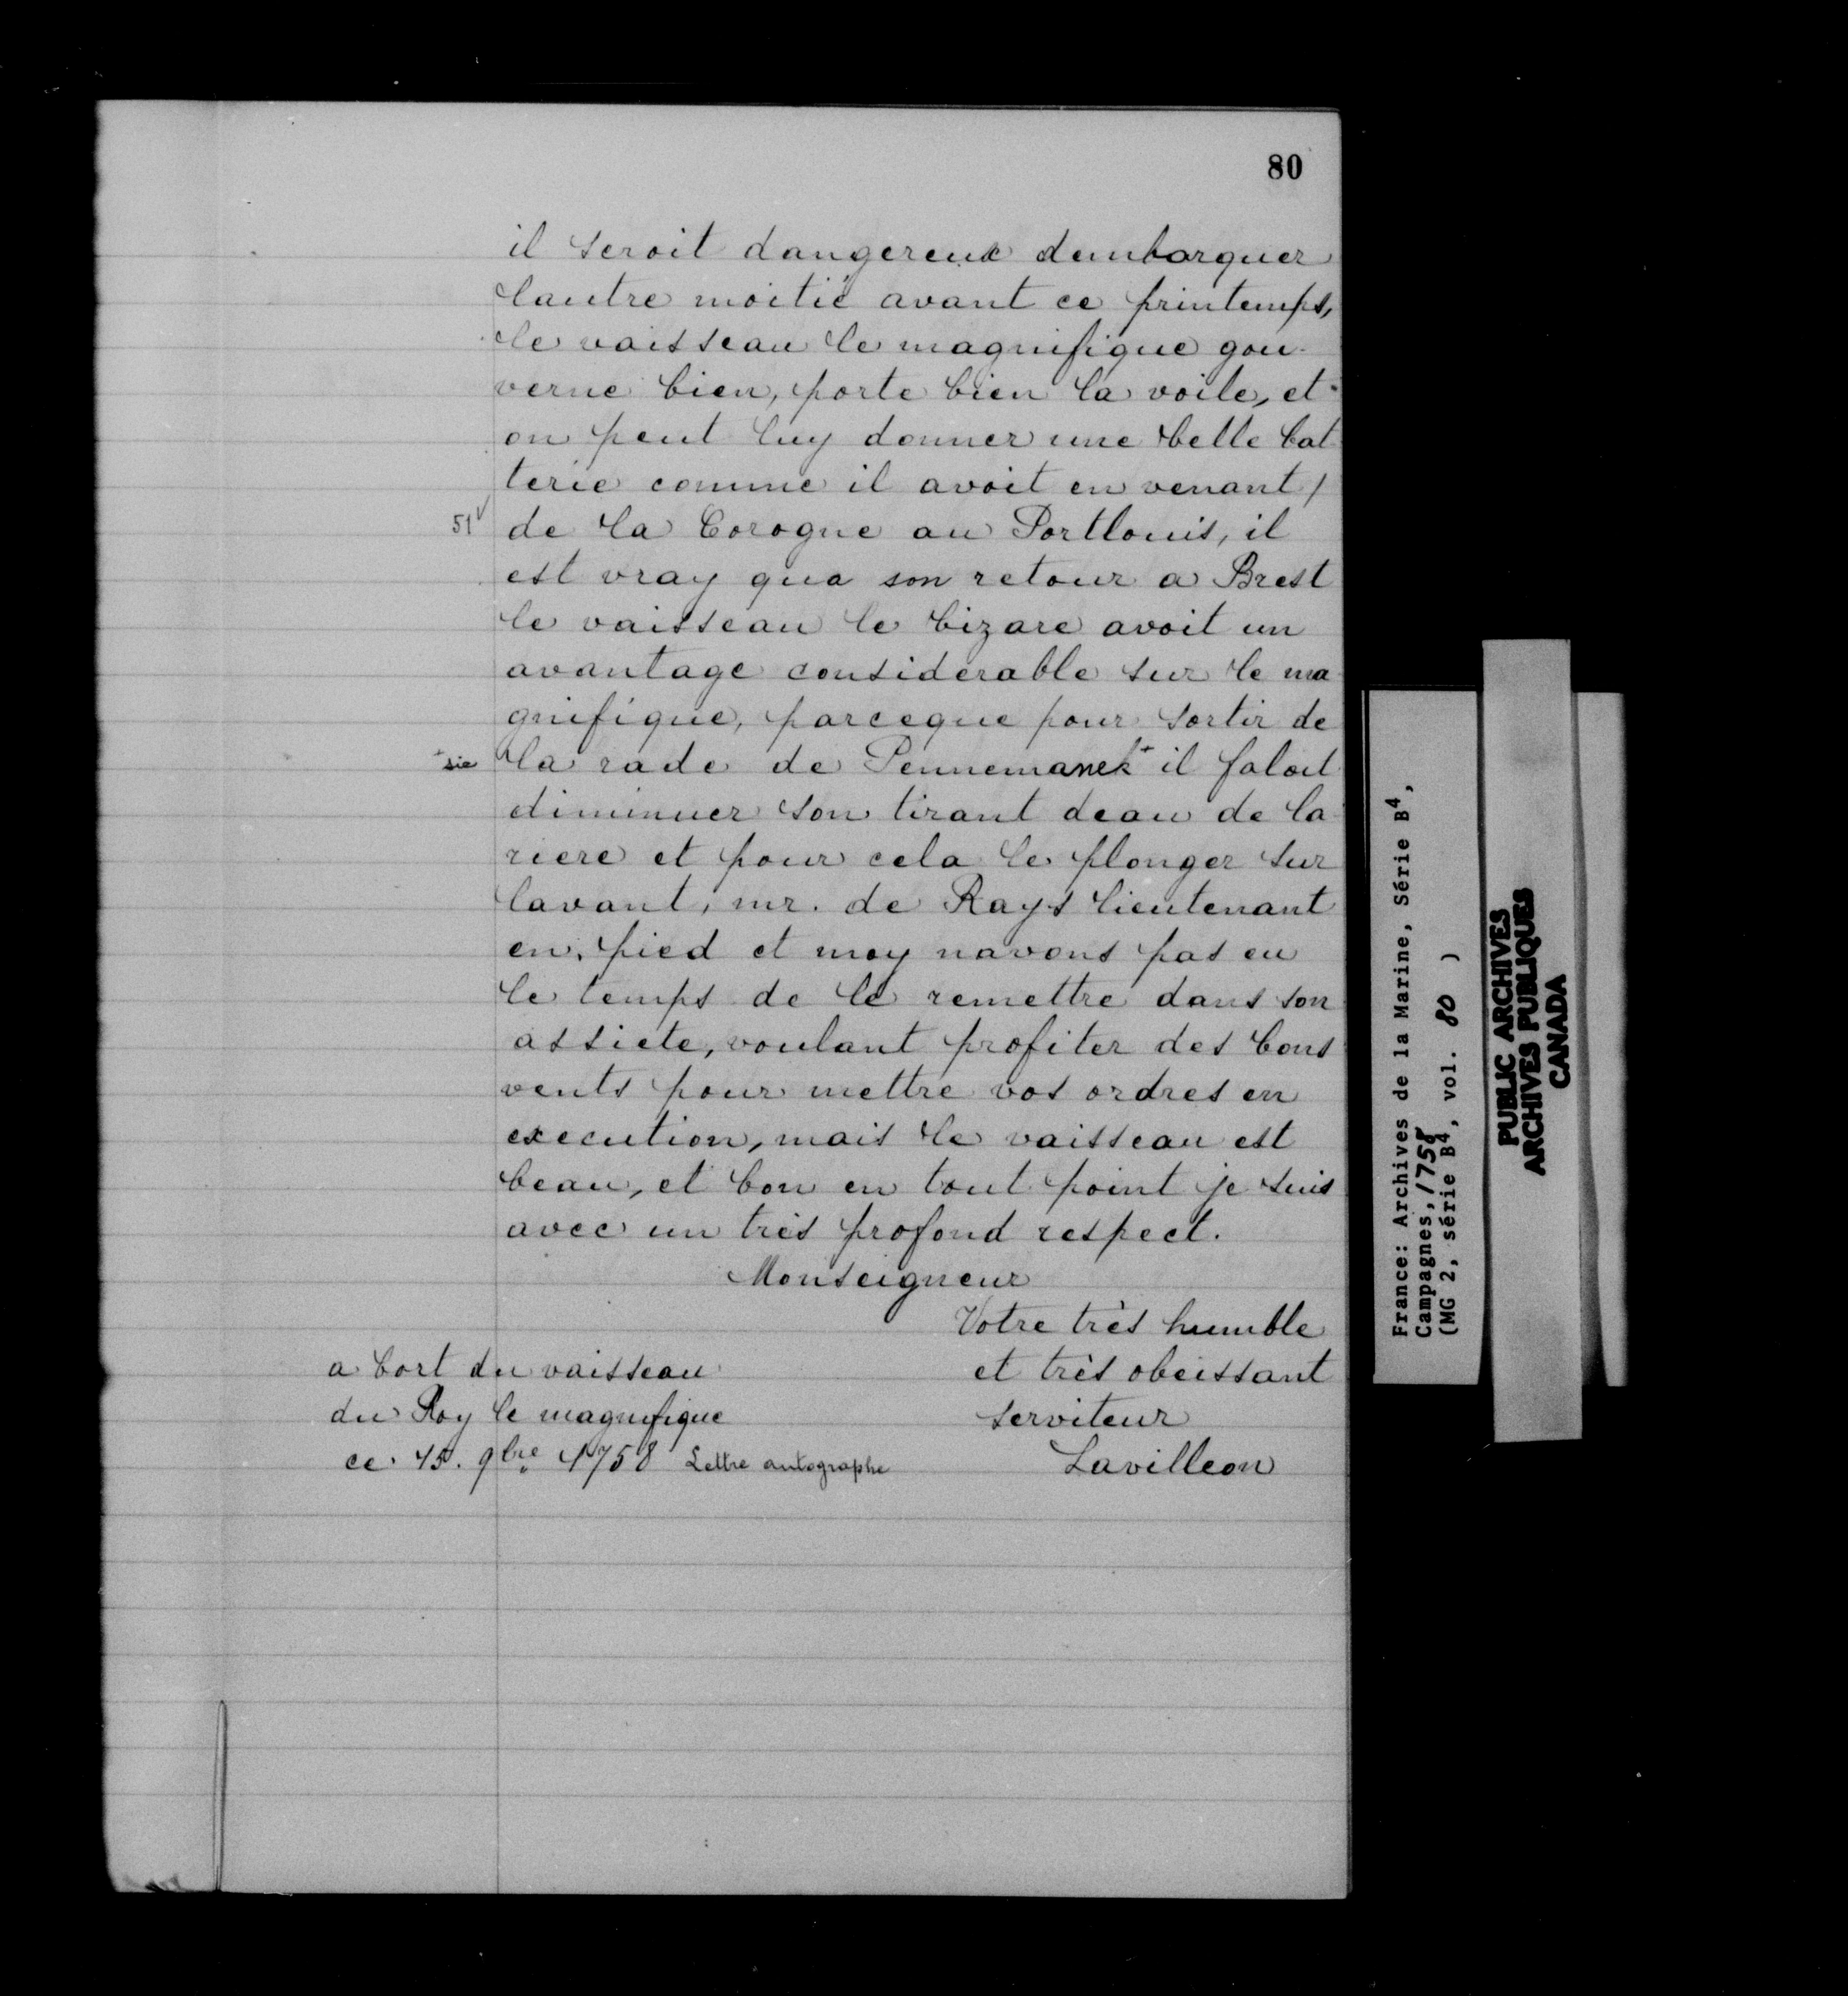 80
il seroit dangereux dembarquer
lautre moitié avant ce printemps,
le vaisseau le magnifique gou-
verne bien, porte bien la voile, et
on peut luy donner une belle bat
terie comme il avoit en venant /
51v de la Corogne au Portlouis, il
est vray qua son retour a Brest
le vaisseau le bizare avoit un
avantage considerable sur le ma
gnifique, parceque pour sortir de
+sic la rade de Pennemanek+ il faloit
diminuer son tirant deau de la
riere et pour cela le plonger sur
lavant, mr. de Rays lieutenant
en pied et moy navons pas eu
le temps de le remettre dans son
assiete, voulant profiter des bons
vents pour mettre vos ordres en
execution, mais le vaisseau est
beau, et bon en tout point je suis
avec un très profond respect.
Monseigneur
Votre très humble
et très obeissant
serviteur
Lavilleon
a bort du vaisseau
du Roy le magnifique
ce 15. 9bre 1758 Lettre autographe
France: Archives de la Marine, Série B4,
Campagnes, 1758
(MG 2, série B4, vol. 80 )
PUBLIC ARCHIVES
ARCHIVES PUBLIQUES
CANADA